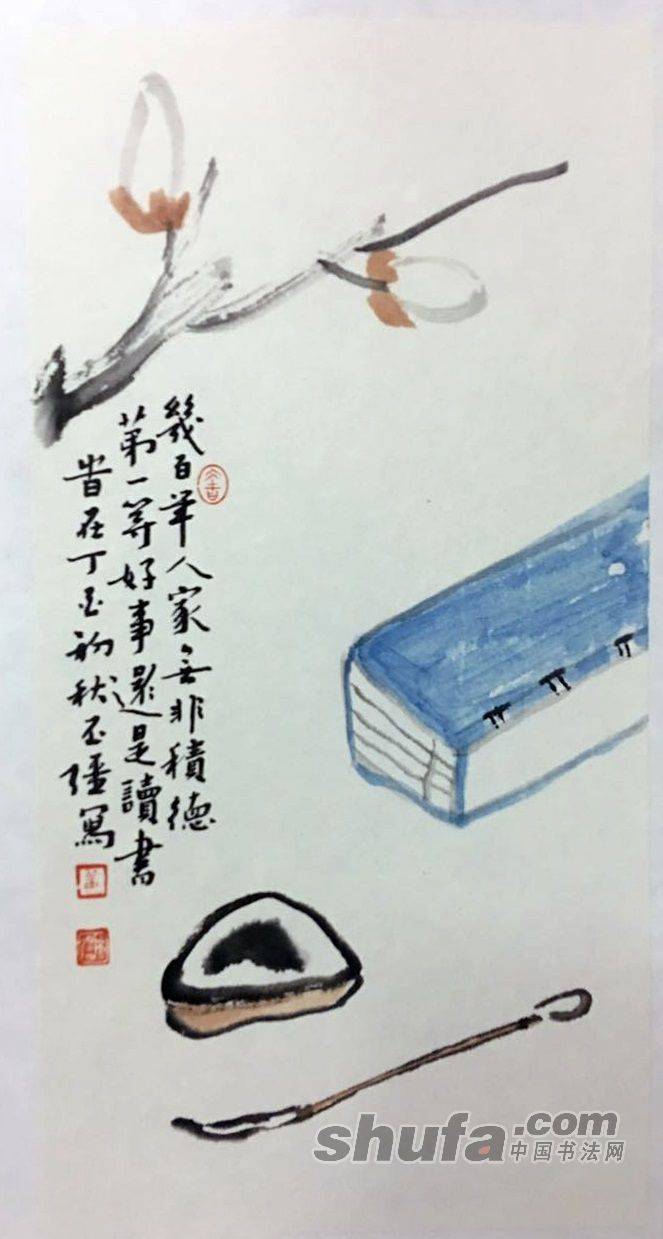 幾百年人家無非積德
第一等好事還是讀書
旹在丁酉初秋不彊寫
shufa.com
中国书法网